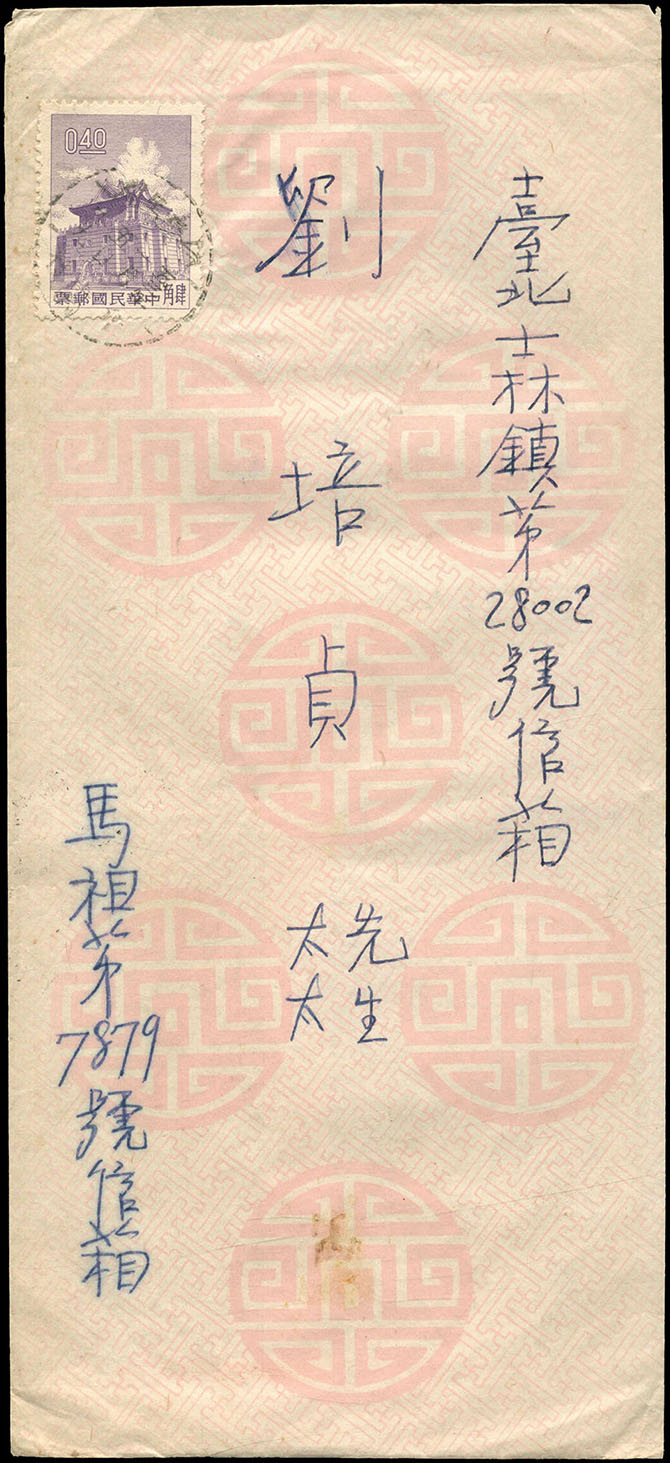 臺北士林鎮第28002號信箱
劉培貞
先生
太太
馬祖第7879號信箱
040
中華民國郵票
肆角